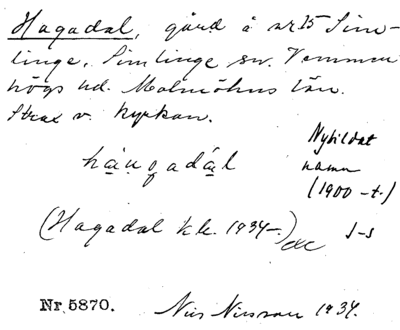 Hagadal, gård å nr 15 Sim-
linge, Simlinge sn. Vemmen
högs hd. Malmöhus län.
Strax v. kyrkan.
Nybildat
namn
(1900-t.)
(Hagadal kk. 1934-)
J-s
Nr 5870.
Nils Nilsson 1934.